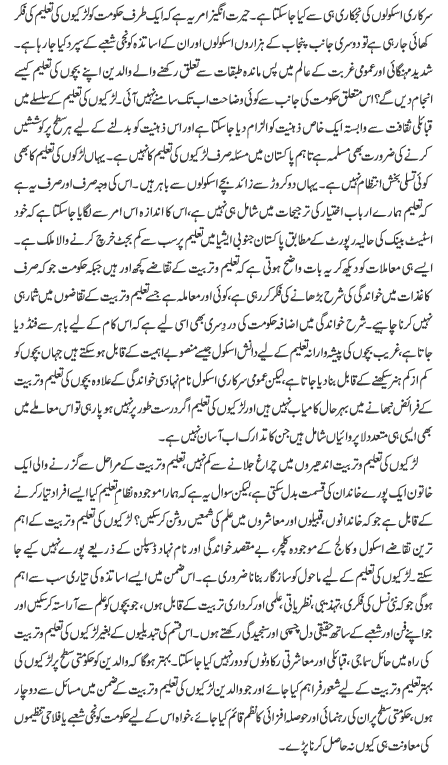 سرکاری اسکولوں کی نجکاری ہی سے کیا جا سکتا ہے۔ حیرت انگیز امر یہ ہے کہ ایک طرف حکومت کو لڑکیوں کی تعلیم کی فکر
کھائی جا رہی ہے تو دوسری جانب پنجاب کے ہزاروں اسکولوں اور ان کے اساتذہ کو نجی شعبے کے سپرد کیا جا رہا ہے۔
شدید مہنگائی اور عمومی غربت کے عالم میں پس ماندہ طبقات سے تعلق رکھنے والے والدین اپنے بچوں کی تعلیم کیسے
انجام دیں گے؟ اس متعلق حکومت کی جانب سے کوئی وضاحت اب تک سامنے نہیں آئی۔ لڑکیوں کی تعلیم کے سلسلے میں
قبائلی ثقافت سے وابستہ ایک خاص ذہنیت کو الزام دیا جا سکتا ہے اور اس ذہنیت کو بدلنے کے لیے ہر سطح پر کوششیں
کرنے کی ضرورت بھی مسلمہ ہے تاہم پاکستان میں مسئلہ صرف لڑکیوں کی تعلیم کا نہیں ہے۔ یہاں لڑکوں کی تعلیم کا بھی
کوئی تسلی بخش انتظام نہیں ہے۔ یہاں دو کروڑ سے زائد بچے اسکولوں سے باہر ہیں۔ اس کی وجہ صرف اور صرف یہ ہے
کہ تعلیم ہمارے ارباب اختیار کی ترجیحات میں شامل ہی نہیں ہے، اس کا اندازہ اس امر سے لگایا جا سکتا ہے کہ خود
اسٹیٹ بینک کی حالیہ رپورٹ کے مطابق پاکستان جنوبی ایشیا میں تعلیم پر سب سے کم بجٹ خرچ کرنے والا ملک ہے۔
ایسے ہی معاملات کو دیکھ کر یہ بات واضح ہوتی ہے کہ تعلیم و تربیت کے تقاضے کچھ اور ہیں جبکہ حکومت جو کہ صرف
کاغذات میں خواندگی کی شرح بڑھانے کی فکر کر رہی ہے، کوئی اور معاملہ ہے جسے تعلیم و تربیت کے تقاضوں میں شمار ہی
نہیں کرنا چاہیے۔ شرح خواندگی میں اضافہ حکومت کی درد سری بھی اسی لیے ہے کہ اس کام کے لیے باہر سے فنڈ دیا
جاتا ہے، غریب بچوں کی پیشہ ورانہ تعلیم کے لیے دانش اسکول جیسے منصوبے اہمیت کے قابل ہو سکتے ہیں جہاں بچوں کو
کم از کم ہنر سیکھنے کے قابل بنا دیا جاتا ہے، لیکن عمومی سرکاری اسکول نام نہاد سی خواندگی کے علاوہ بچوں کی تعلیم و تربیت
کے فرائض نبھانے میں بہرحال کامیاب نہیں ہیں اور لڑکیوں کی تعلیم اگر درست طور پر نہیں ہو پا رہی تو اس معاملے میں
بھی ایسی ہی متعدد لاپروائیاں شامل ہیں جن کا تدارک اب آسان نہیں ہے۔
لڑکیوں کی تعلیم و تربیت اندھیروں میں چراغ جلانے سے کم نہیں، تعلیم و تربیت کے مراحل سے گزرنے والی ایک
خاتون ایک پورے خاندان کی قسمت بدل سکتی ہے، لیکن سوال یہ ہے کہ ہمارا موجودہ نظام تعلیم کیا ایسے افراد تیار کرنے
کے قابل ہے جو کہ خاندانوں، قبیلوں اور معاشروں میں علم کی شمعیں روشن کر سکیں؟ لڑکیوں کی تعلیم و تربیت کے اہم
ترین تقاضے اسکول و کالج کے موجودہ کلچر، بے مقصد خواندگی اور نام نہاد ڈسپلن کے ذریعے پورے نہیں کیے جا
سکتے۔ لڑکیوں کی تعلیم کے لیے ماحول کو سازگار بنانا ضروری ہے۔ اس ضمن میں ایسے اساتذہ کی تیاری سب سے اہم
ہوگی جو کہ نئی نسل کی فکری، تہذیبی، نظریاتی، علمی اور کرداری تربیت کے قابل ہوں، جو بچوں کو علم سے آراستہ کر سکیں اور
جو اپنے فن اور شعبے کے ساتھ حقیقی دل چسپی اور سنجیدگی رکھتے ہوں۔ اس قسم کی تبدیلیوں کے بغیر لڑکیوں کی تعلیم
کی راہ میں حائل سماجی، قبائلی اور معاشرتی رکاوٹوں کو دور نہیں کیا جا سکتا۔ بہتر ہوگا کہ والدین کو حکومتی سطح پر لڑکیوں کی
بہتر تعلیم و تربیت کے لیے شعور فراہم کیا جائے اور جو والدین لڑکیوں کی تعلیم و تربیت کے ضمن میں مسائل سے دوچار
ہوں، حکومتی سطح پر ان کی رہنمائی اور حوصلہ افزائی کا نظم قائم کیا جائے، خواہ اس کے لیے حکومت کو نجی شعبے یا فلاحی تنظیموں
کی معاونت ہی کیوں نہ حاصل کرنا پڑے۔